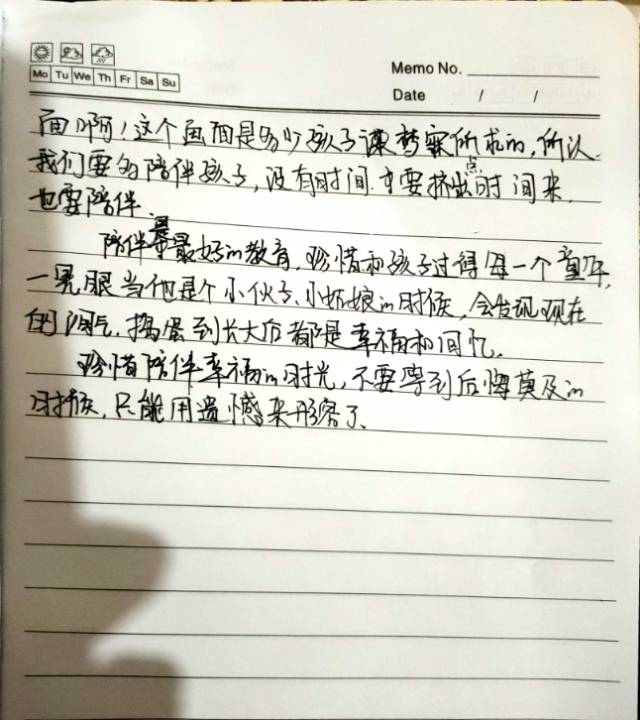 Mo Tu We Th Fr Sa Su
Memo No.
Date / /
面啊！这个画面是多少孩子梦寐所求的，所以
我们要多陪伴孩子，没有时间 也要挤出点时间来
也要陪伴.
陪伴是最好的教育，珍惜和孩子过得每一个童年,
一晃眼当他是个小伙子、小姑娘的时候，会发现现在
的淘气、捣蛋到长大后都是幸福和回忆.
珍惜陪伴幸福的时光，不要等到后悔莫及的
时候，只能用遗憾来形容了、